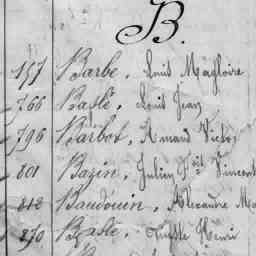 B.
157 Barbe, Louis Magloire
766 Baslé, Louis Jean
796 Barbot, Amand Victor
801 Bazin, Julien Fçois Vincent
812 Baudouin, Alexandre
870 Baslé, Henri